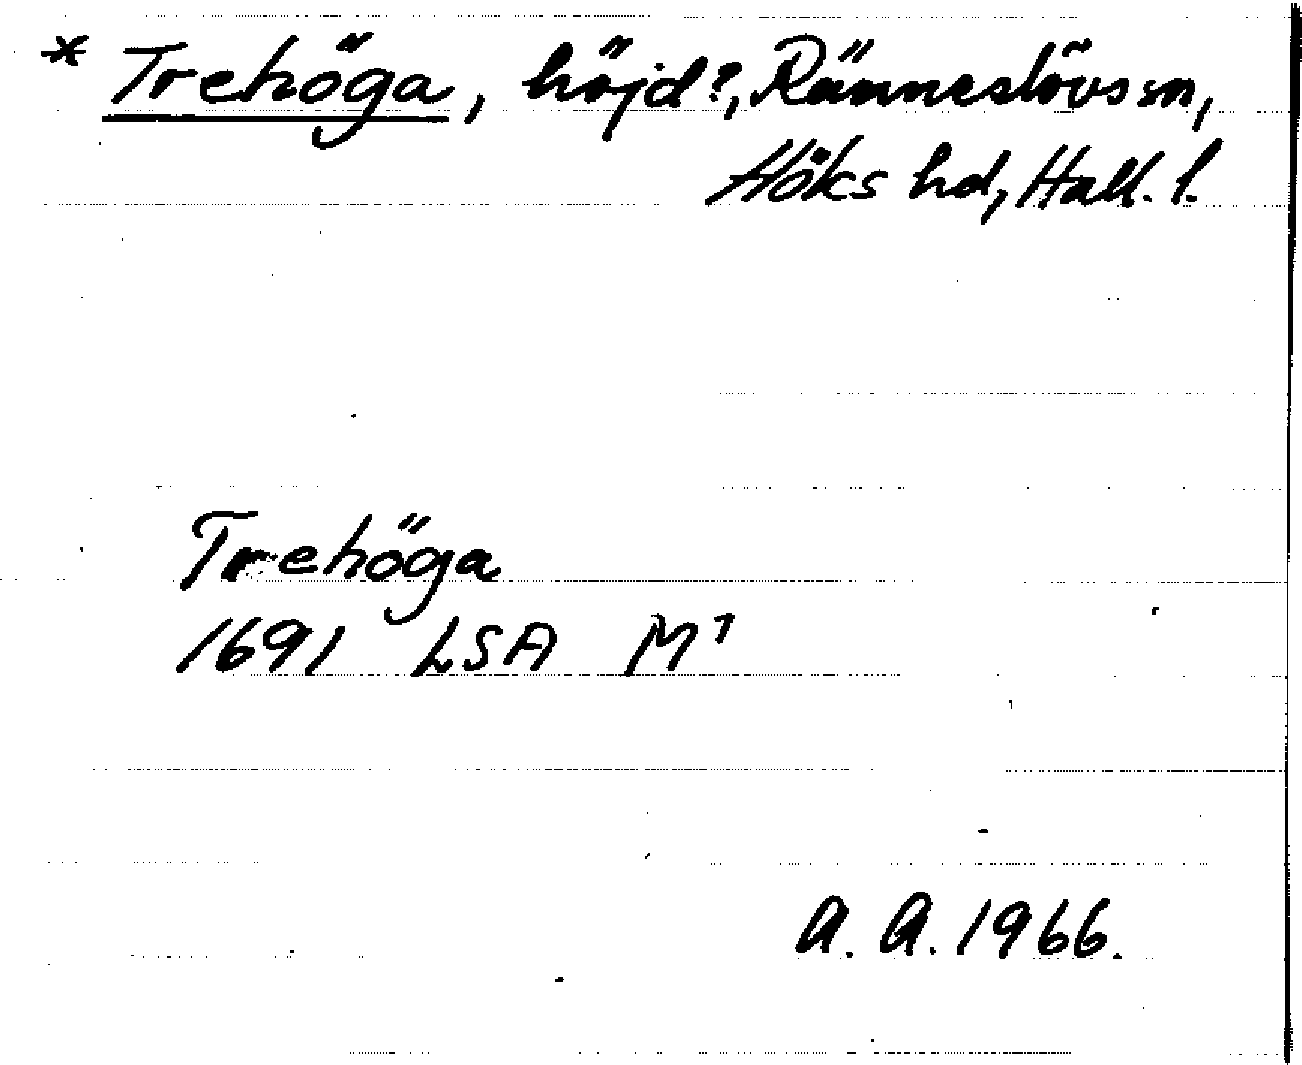 * Trehöga, höjd?, Ränneslövs sn,
Höks hd, Hall. l.
Trehöga
1691 LSA M⁷
A. A. 1966.